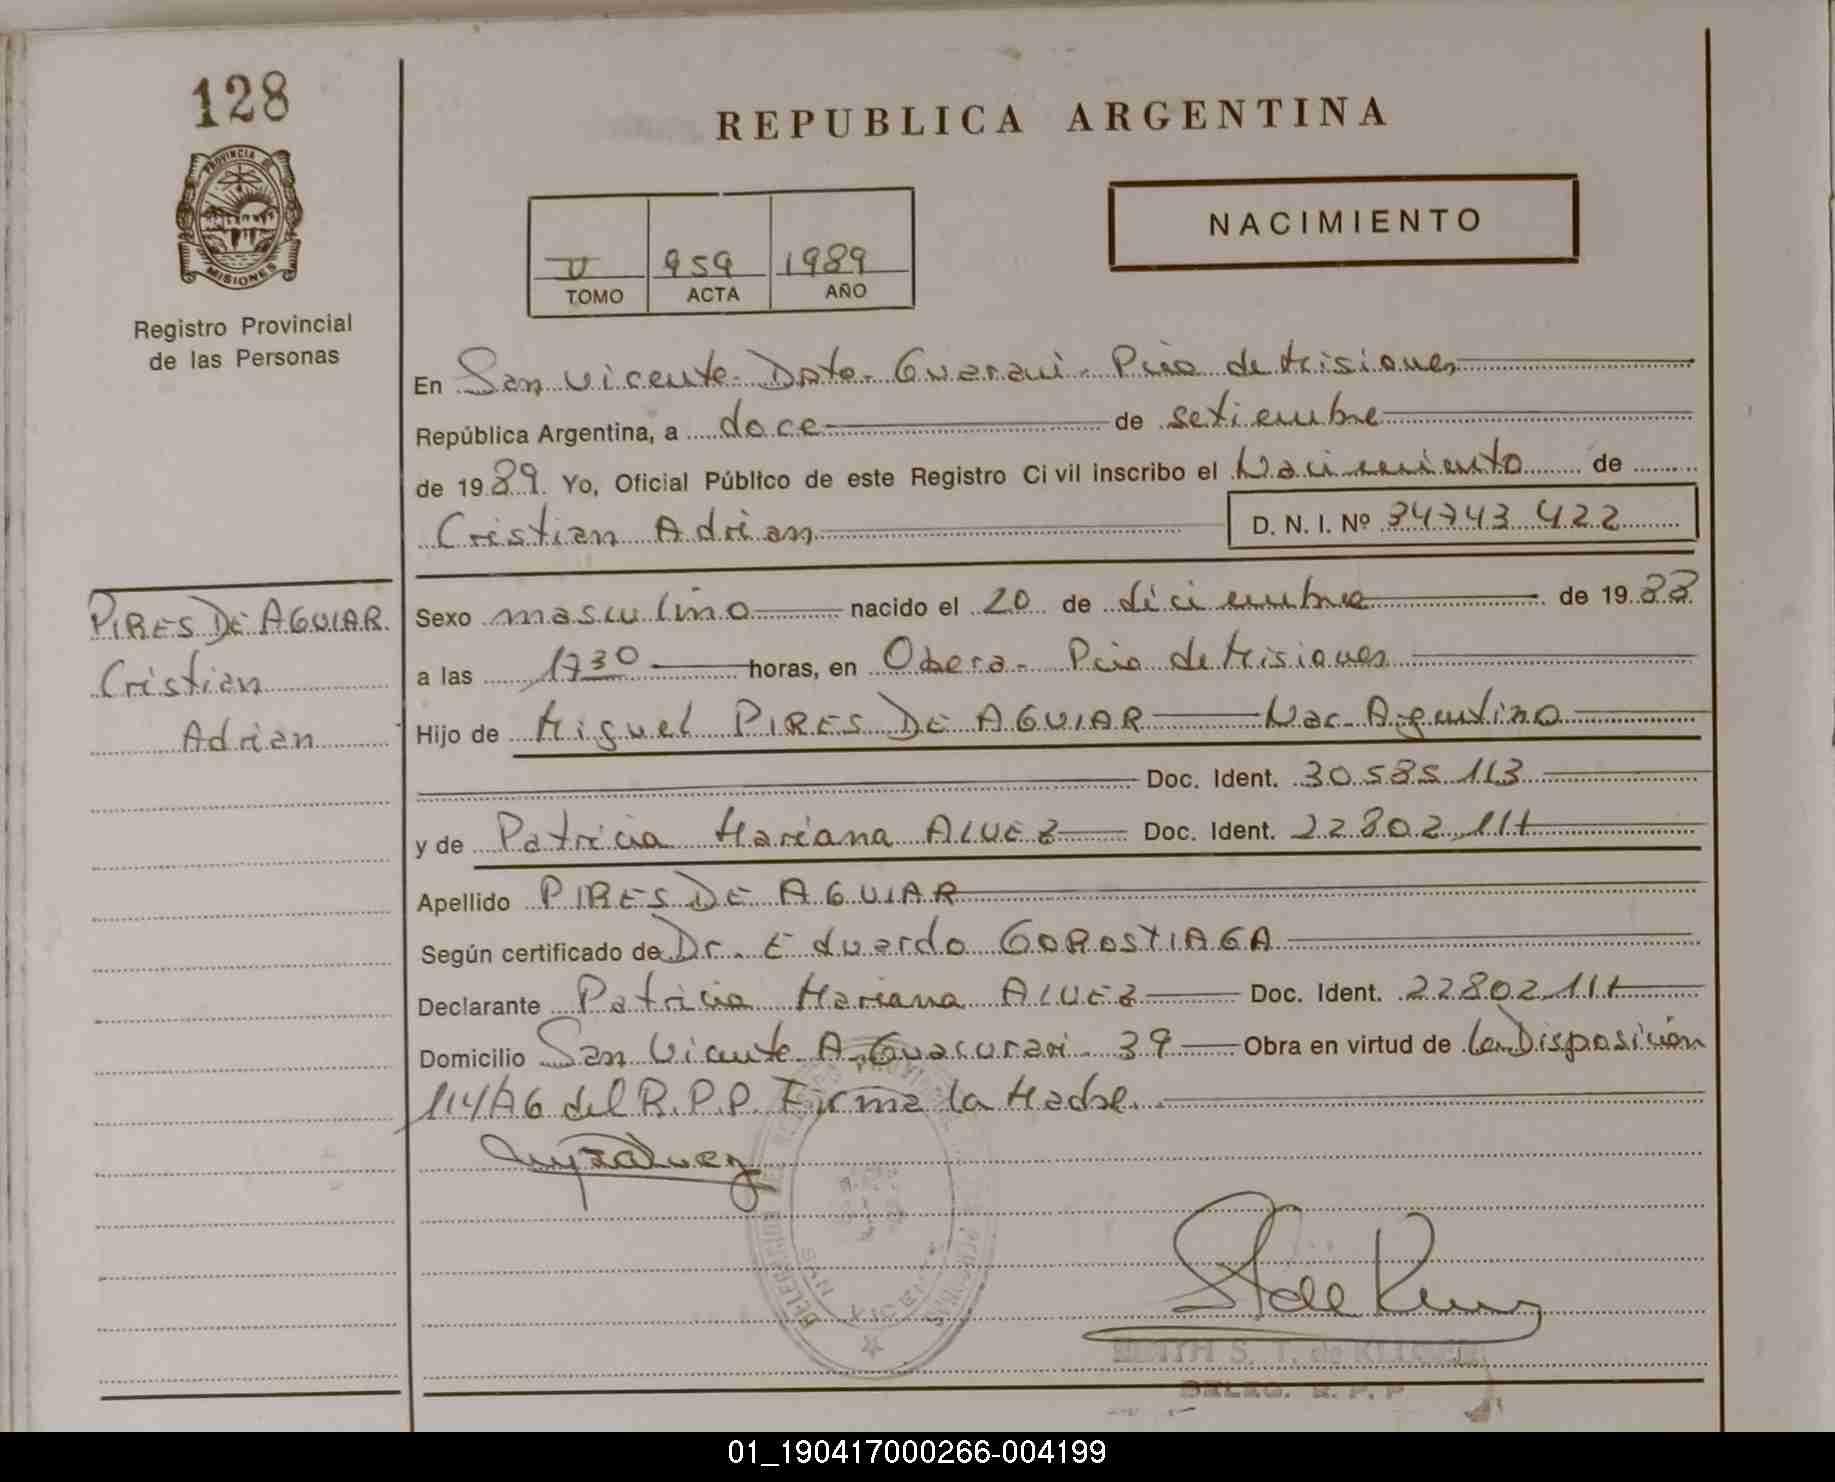 128
REPUBLICA ARGENTINA
PROVINCIA DE
MISIONES
NACIMIENTO
U 959 1989
TOMO ACTA AÑO
Registro Provincial
de las Personas
En San Vicente - Dpto. Guarani - Pcia de Misiones
República Argentina, a doce de setiembre
de 1989. Yo, Oficial Público de este Registro Civil inscribo el Nacimiento de
Cristian Adrian D. N. I. Nº 34743 422
PIRES DE AGUIAR
Cristian
Adrian
Sexo masculino nacido el 20 de diciembre de 1988
a las 1730 horas, en Obera - Pcia de Misiones
Hijo de Miguel PIRES DE AGUIAR Nac. Argentino
Doc. Ident. 30.585.113
y de Patricia Mariana ALVEZ Doc. Ident. 22.802.111
Apellido PIRES DE AGUIAR
Según certificado de Dr. Eduardo GOROSTIAGA
Declarante Patricia Mariana ALVEZ Doc. Ident. 22802.111
Domicilio San Vicente A. Guacurari 39 Obra en virtud de la Disposición
114/AG del R.P.P. Firma la Madre.
SAN VICENTE
S. T. de
DELEG. R. P. P
01_190417000266-004199